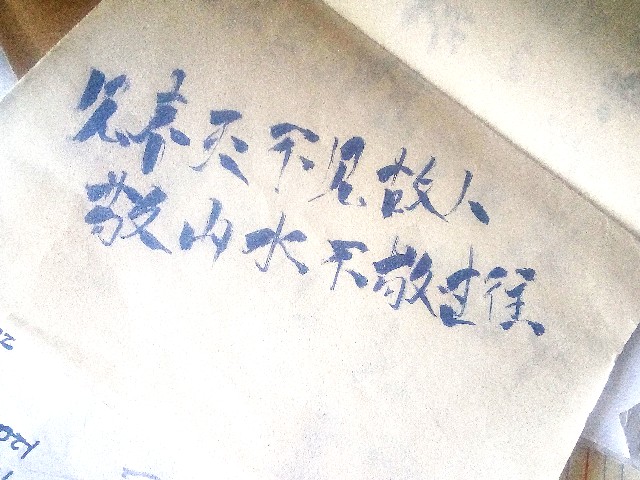 见春天不见故人
敬山水不敬过往